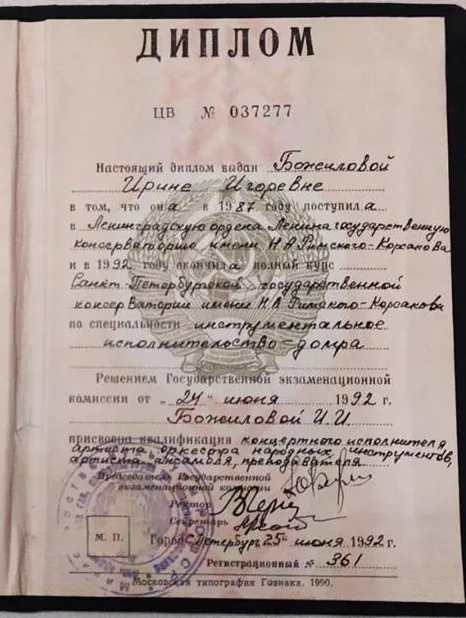 ДИПЛОМ
ЦВ № 037277
Настоящий диплом выдан Божиловой
Ирине Игоревне
в том, что она в 1987 году поступила
в Ленинградскую ордена Ленина государственную
консерваторию имени Н.А Римского-Корсакова
и в 1992 году окончила полный курс
Санкт-Петербургской государственной
консерватории имени Н.А. Римского-Корсакова
по специальности инструментальное
исполнительство-домра
Решением Государственной экзаменационной
комиссии от „24" июня 1992 г.
Божиловой И.И
присвоена квалификация концертного исполнителя,
артиста оркестра народных инструментов,
артиста ансамбля, преподавателя
Председатель Государственной
экзаменационной комиссии
Ректор
Секретарь
М. П.
Город С Петербург 25 июня 1992 г.
Регистрационный № 361
Московская типография Гознака. 1990.